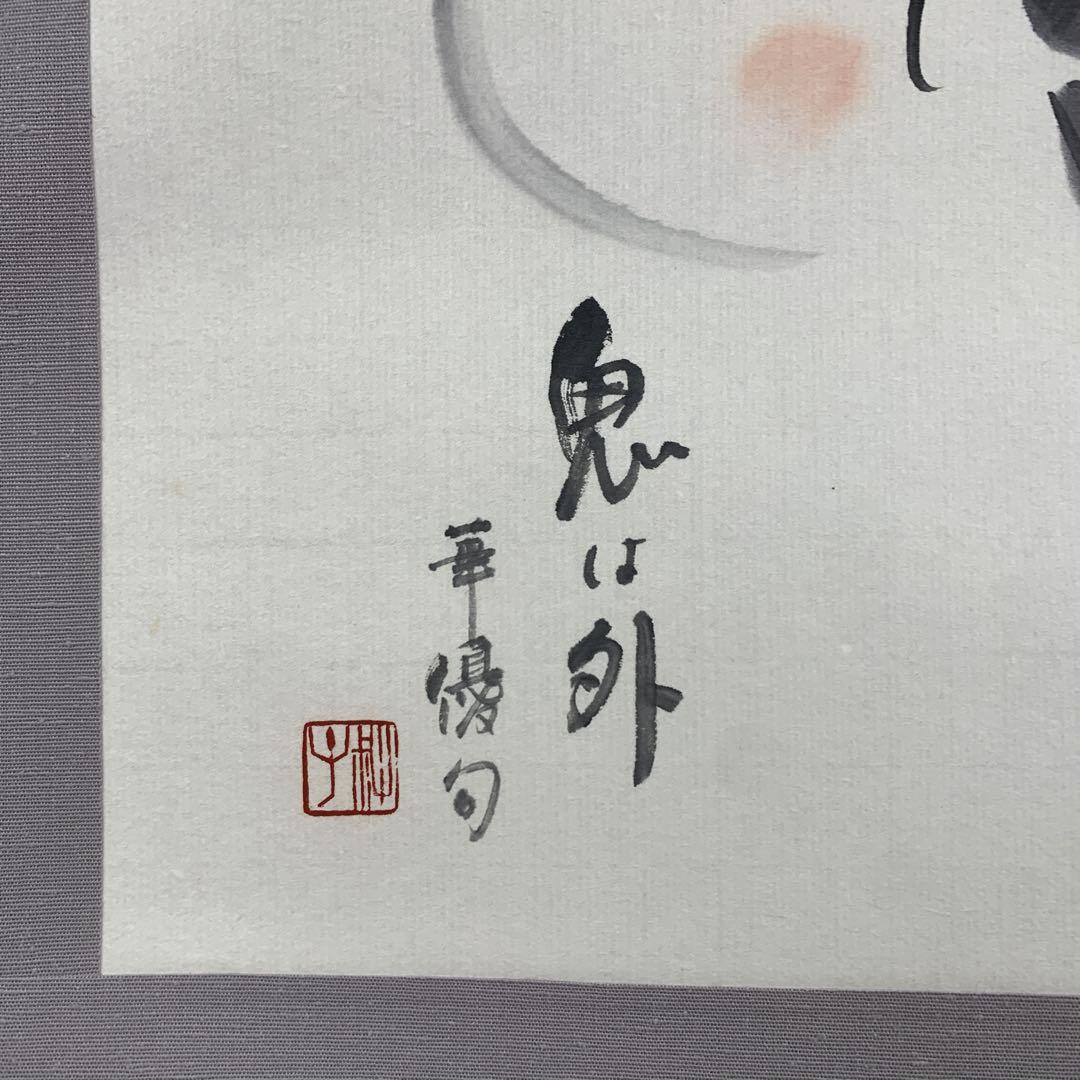 鬼は外
華優句